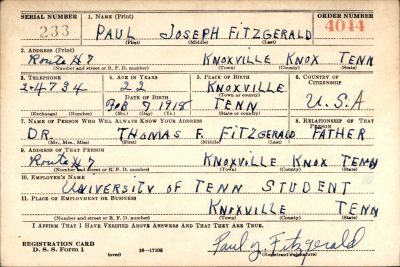 SERIAL NUMBER 1. NAME (Print) ORDER NUMBER
233 PAUL JOSEPH FITZGERALD 4044
(First) (Middle) (Last)
2. ADDRESS (Print)
Route #7 KNOXVILLE KNOX TENN
(Number and street or R. F. D. number) (Town) (County) (State)
3. TELEPHONE 4. AGE IN YEARS 5. PLACE OF BIRTH 6. COUNTRY OF CITIZENSHIP
2-4734 22 KNOXVILLE
DATE OF BIRTH (Town or county)
9 1918 TENN U.S.A
(Exchange) (Number) (Mo.) (Day) (Yr.) (State or country)
7. NAME OF PERSON WHO WILL ALWAYS KNOW YOUR ADDRESS 8. RELATIONSHIP OF THAT PERSON
DR. THOMAS F. FITZGERALD FATHER
(Mr., Mrs., Miss) (First) (Middle) (Last)
9. ADDRESS OF THAT PERSON
Route #7 KNOXVILLE KNOX TENN
(Number and street or R. F. D. number) (Town) (County) (State)
10. EMPLOYER'S NAME
UNIVERSITY OF TENN STUDENT
11. PLACE OF EMPLOYMENT OR BUSINESS
KNOXVILLE TENN
(Number and street or R. F. D. number) (Town) (County) (State)
I AFFIRM THAT I HAVE VERIFIED ABOVE ANSWERS AND THAT THEY ARE TRUE.
REGISTRATION CARD
D. S. S. Form 1 (over) 16-17105 Paul J Fitzgerald
(Registrant's signature)